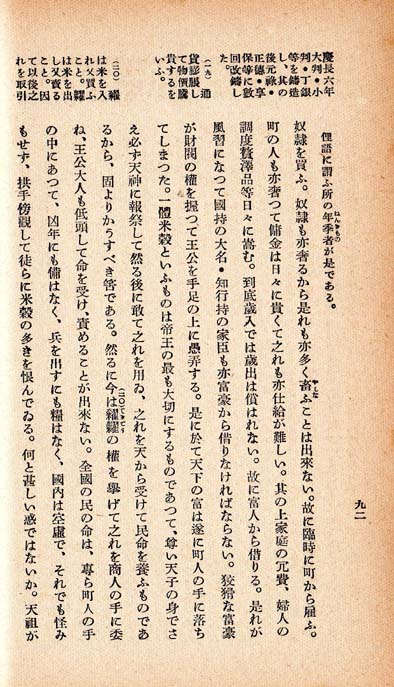 慶長六年
大判・小
判・丁銀
等を鑄造
し、其の
後元祿・
正德・享
保等に數
回改鑄し
た。
(一九) 通
貨膨脹し
て物價騰
貴するを
いふ。
(二〇) 糴
は米を入
れ又買ふ
こと。糶
は米を出
し又賣る
こと。因
て以後之
れを取引
俚語に謂ふ所の年季者が是である。
ねんきもの
奴隷を買ふ。奴隷も亦奢るから是れも亦多く畜ふことは出來ない。故に臨時に町から雇ふ。
やしな
町の人も亦奢つて傭金は日々に貴くて之れも亦仕給が難しい。其の上家庭の冗費、婦人の
調度贅澤品等日々に嵩む。到底歲入では歲出は償はれない。故に富人から借りる。是れが
風習になつて國持の大名・知行持の家臣も亦富豪から借りなければならない。狡猾な富豪
が財閥の權を握つて王公を手足の上に愚弄する。是に於て天下の富は遂に町人の手に落ち
てしまつた。一體米穀といふものは帝王の最も大切にするものであつて、尊い天子の身でさ
え必ず天神に報祭して然る後に敢て之れを用ゐ、之れを天から受けて民命を養ふものであ
るから、固よりかうすべき筈である。然るに今は糴糶の權を擧げて之れを商人の手に委
(二〇)てきてう
ね、王公大人も低頭して命を受け、責めることが出來ない。全國の民の命は、專ら町人の手
の中にあつて、凶年にも備はなく、兵を出すにも糧はなく、國內は空虛で、それでも怪み
もせず、拱手傍觀して徒らに米穀の多きを恨んでゐる。何と甚しい惑ではないか。天祖が
九二